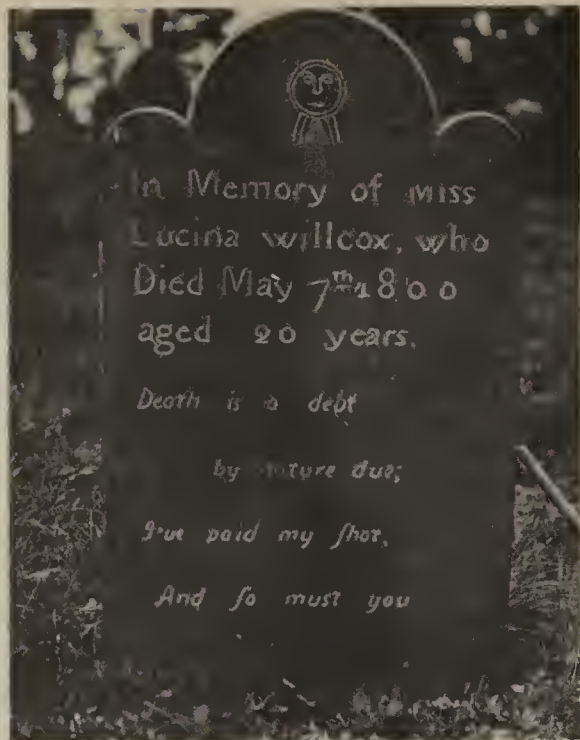 In Memory of Miss
Lucina willcox, who
Died May 7th 1800
aged 20 years.
Death is a debt
by nature due;
I've paid my ſhot,
And ſo must you